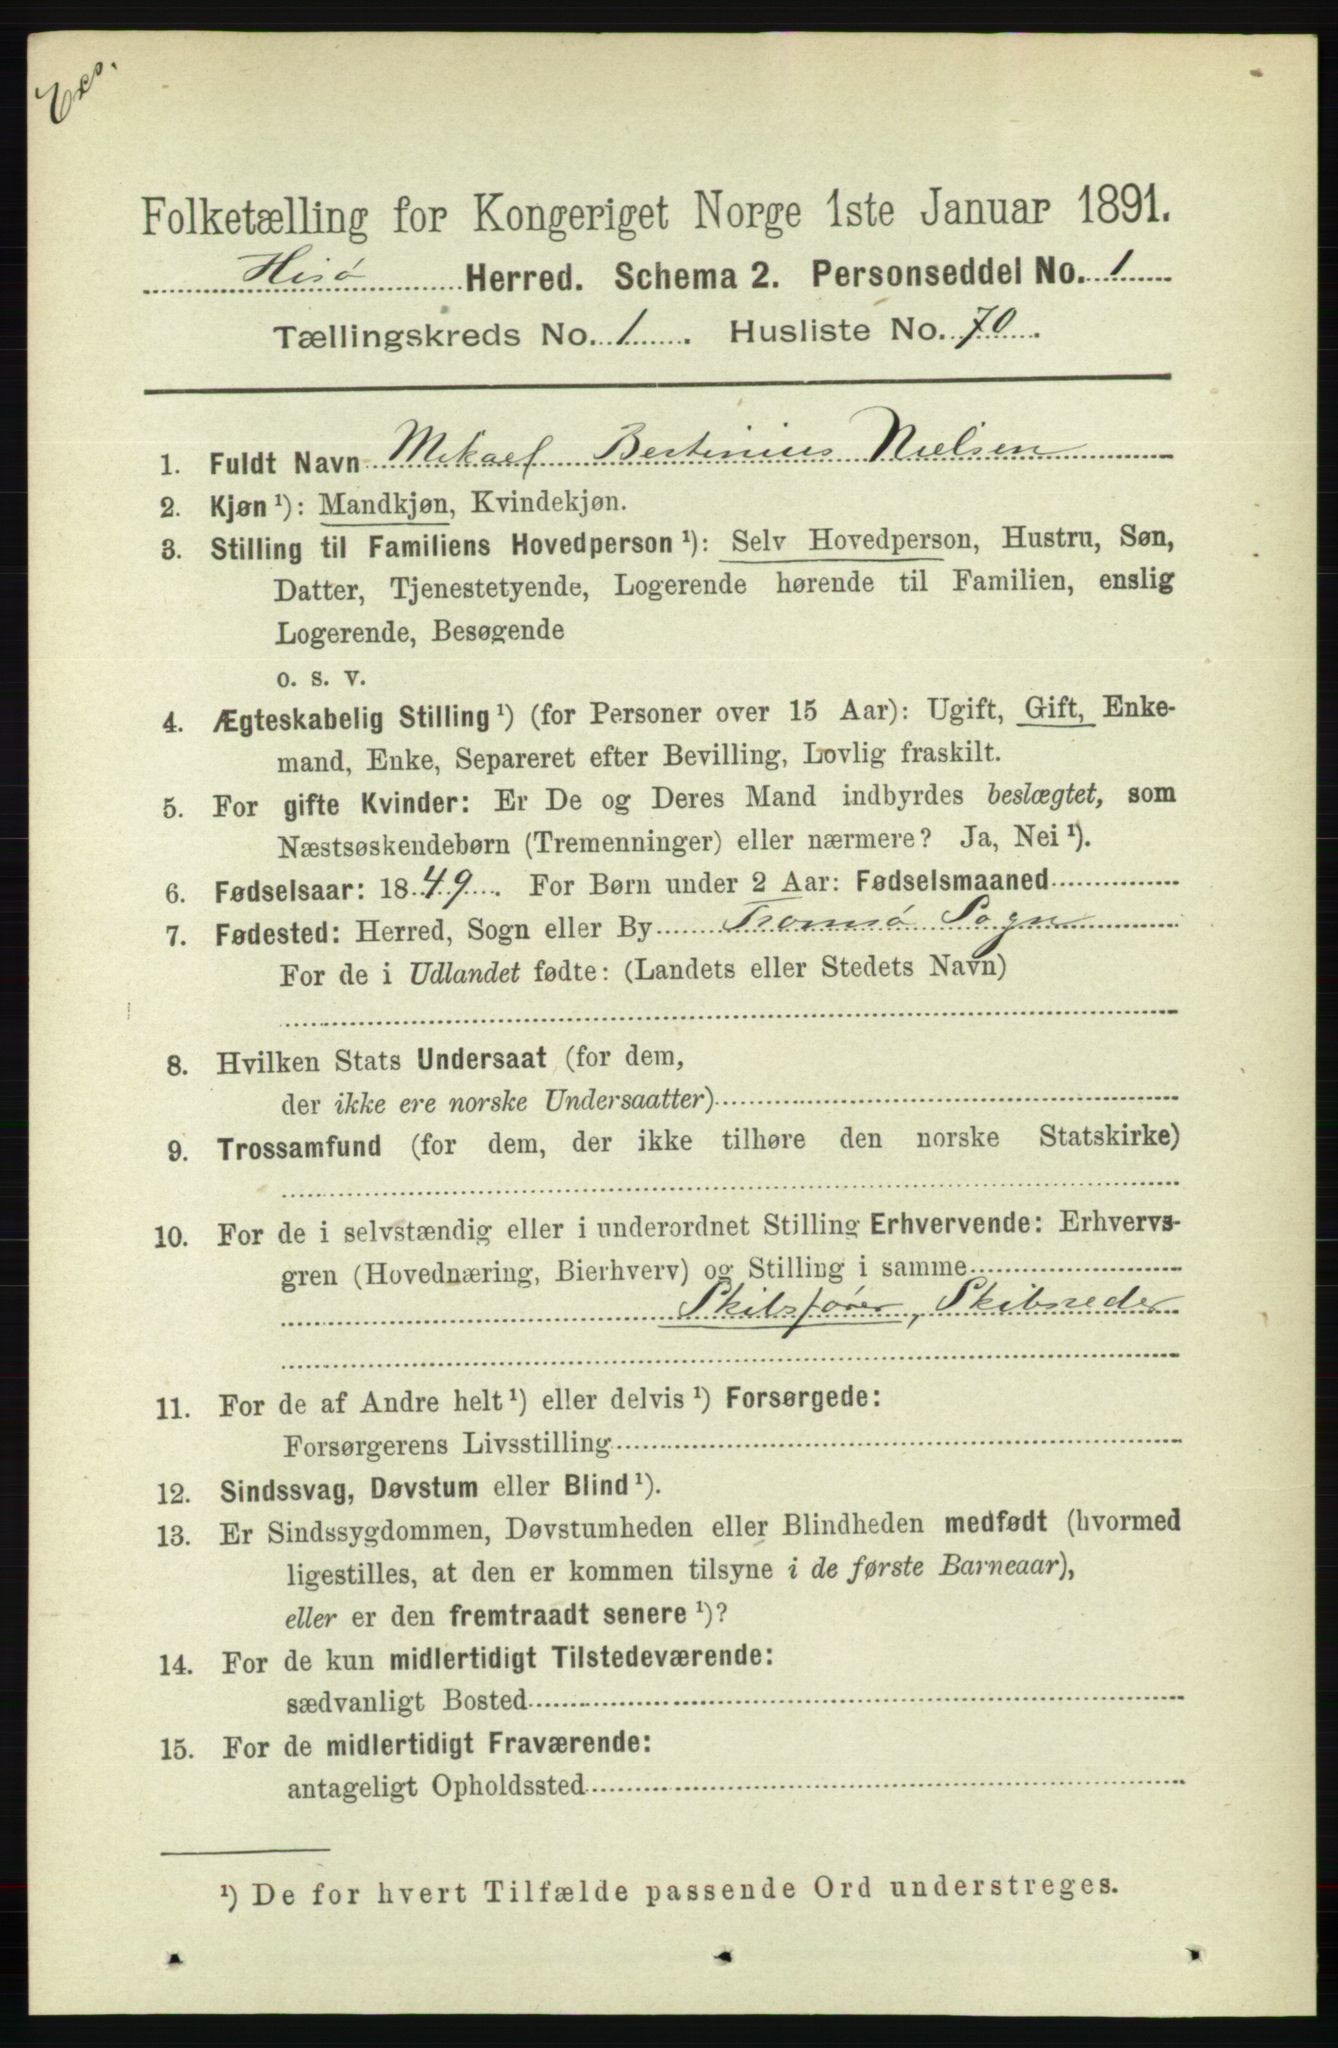 Exp.
Folketælling for Kongeriget Norge 1ste Januar 1891.
Hisø Herred. Schema 2. Personseddel No. 1
Tællingskreds No. 1. Husliste No. 70.
1. Fuldt Navn Mikael Bertinius Nielsen
2. Kjøn ¹): Mandkjøn, Kvindekjøn.
3. Stilling til Familiens Hovedperson ¹): Selv Hovedperson, Hustru, Søn,
Datter, Tjenestetyende, Logerende hørende til Familien, enslig
Logerende, Besøgende
o. s. v.
4. Ægteskabelig Stilling ¹) (for Personer over 15 Aar): Ugift, Gift, Enke-
mand, Enke, Separeret efter Bevilling, Lovlig fraskilt.
5. For gifte Kvinder: Er De og Deres Mand indbyrdes beslægtet, som
Næstsøskendebørn (Tremenninger) eller nærmere? Ja, Nei ¹).
6. Fødselsaar: 1849. For Børn under 2 Aar: Fødselsmaaned
7. Fødested: Herred, Sogn eller By Tromsø Sogn
For de i Udlandet fødte: (Landets eller Stedets Navn)
8. Hvilken Stats Undersaat (for dem,
der ikke ere norske Undersaatter)
9. Trossamfund (for dem, der ikke tilhøre den norske Statskirke)
10. For de i selvstændig eller i underordnet Stilling Erhvervende: Erhvervs-
gren (Hovednæring, Bierhverv) og Stilling i samme
Skibsfører, Skibsreder
11. For de af Andre helt ¹) eller delvis ¹) Forsørgede:
Forsørgerens Livsstilling
12. Sindssvag, Døvstum eller Blind ¹).
13. Er Sindssygdommen, Døvstumheden eller Blindheden medfødt (hvormed
ligestilles, at den er kommen tilsyne i de første Barneaar),
eller er den fremtraadt senere ¹)?
14. For de kun midlertidigt Tilstedeværende:
sædvanligt Bosted
15. For de midlertidigt Fraværende:
antageligt Opholdssted
¹) De for hvert Tilfælde passende Ord understreges.